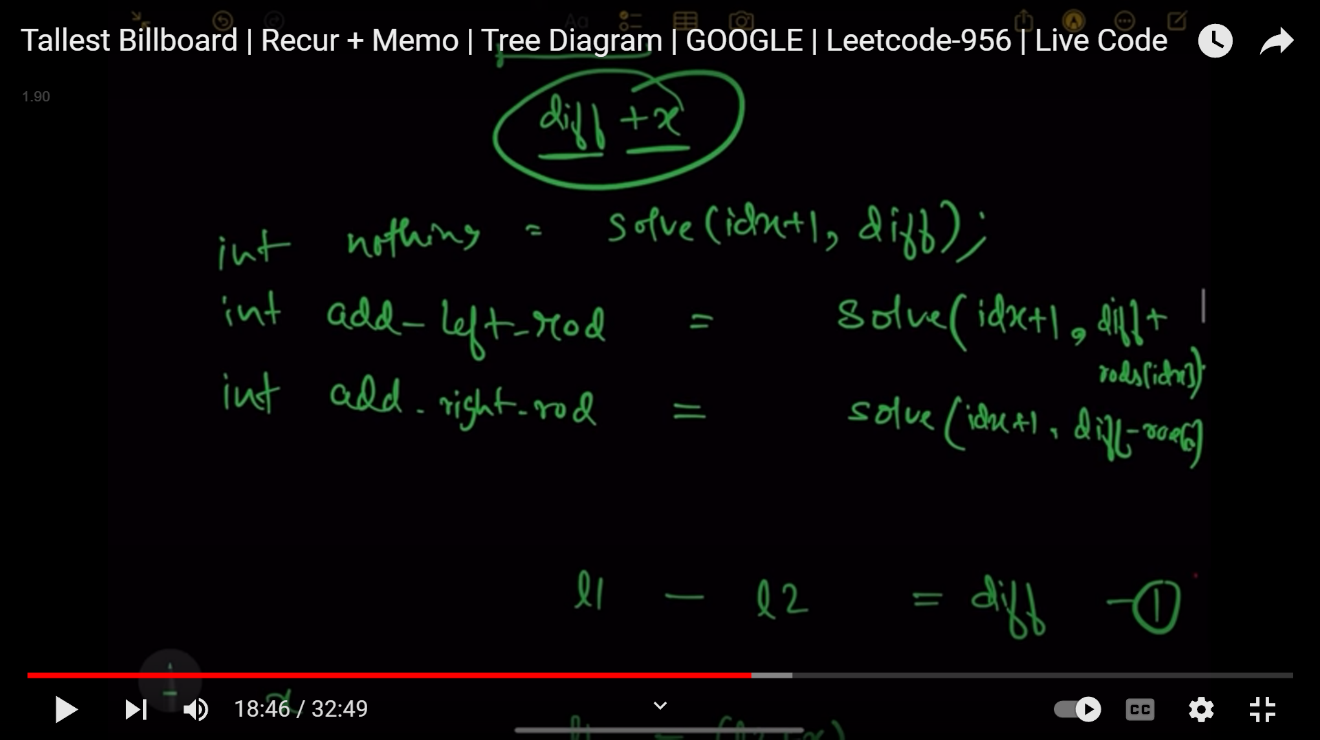 Tallest Billboard | Recur + Memo | Tree Diagram | GOOGLE | Leetcode-956 | Live Code
Aa
1.90
diff + x
int nothing = solve(idx+1, diff);
int add_left_rod = solve(idx+1, diff+
rods[idx]);
int add_right_rod = solve(idx+1, diff-
l1 - l2 = diff - 1
x
18:46 / 32:49
CC